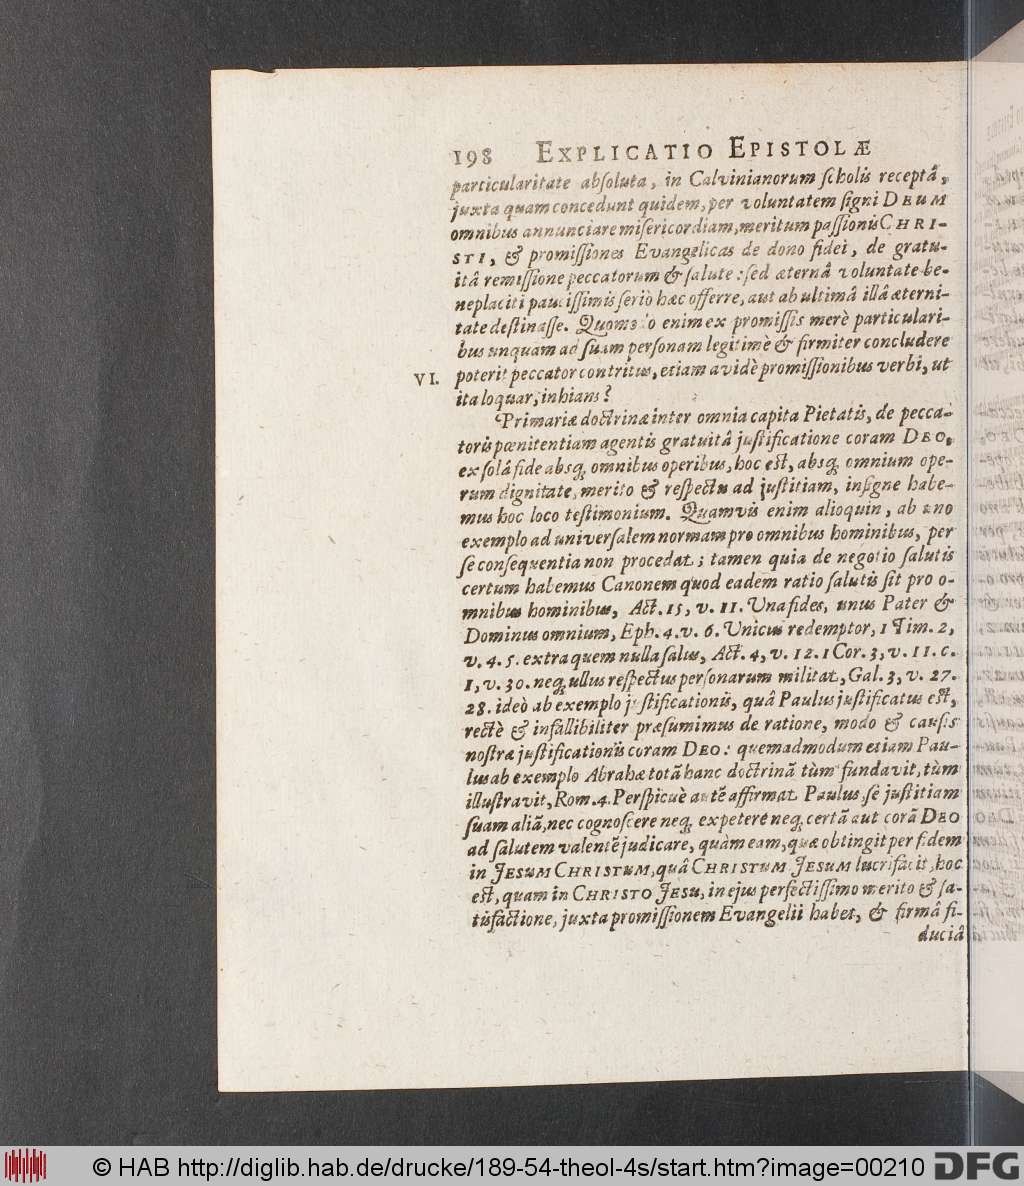 198 EXPLICATIO EPISTOLÆ
particularitate absoluta, in Calvinianorum scholis receptâ,
juxta quam concedunt quidem, per voluntatem signi DEUM
omnibus annunciare misericordiam, meritum passionis CHRI-
STI, & promissiones Evangelicas de dono fidei, de gratu-
itâ remissione peccatorum & salute: sed æternâ voluntate be-
neplaciti paucissimis seriò hæc offerre, aut ab ultimâ illâ æterni-
tate destinasse. Quomodo enim ex promissis merè particulari-
bus unquam ad suam personam legitimè & firmiter concludere
VI. poterit peccator contritus, etiam avidè promissionibus verbi, ut
ita loquar, inhians?
Primariæ doctrinæ inter omnia capita Pietatis, de pecca-
toris pœnitentiam agentis gratuitâ justificatione coram DEO,
ex solâ fide absq; omnibus operibus, hoc est, absq; omnium ope-
rum dignitate, merito & respectu ad justitiam, insigne habe-
mus hoc loco testimonium. Quamvis enim alioquin, ab uno
exemplo ad universalem normam pro omnibus hominibus, per
se consequentia non procedat; tamen quia de negotio salutis
certum habemus Canonem quod eadem ratio salutis sit pro o-
mnibus hominibus, Act. 15, v. 11. Una fides, unus Pater &
Dominus omnium, Eph. 4. v. 6. Unicus redemptor, 1 Tim. 2,
v. 4. 5. extra quem nulla salus, Act. 4, v. 12. 1 Cor. 3, v. 11. c.
1, v. 30. neq; ullus respectus personarum militat, Gal. 3, v. 27.
28. ideò ab exemplo justificationis, quâ Paulus justificatus est,
rectè & infallibiliter præsumimus de ratione, modo & causis
nostræ justificationis coram DEO: quemadmodum etiam Pau-
lus ab exemplo Abrahæ totã hanc doctrinã tùm fundavit, tùm
illustravit, Rom. 4. Perspicuè autẽ affirmat Paulus, se justitiam
suam aliã, nec cognoscere neq; expetere neq; certã aut corã DEO
ad salutem valentẽ judicare, quàm eam, quæ obtingit per fidem
in JESUM CHRISTUM, quâ CHRISTUM JESUM lucrifacit, hoc
est, quam in CHRISTO JESU, in ejus perfectissimo merito & sa-
tisfactione, juxta promissionem Evangelii habet, & firmâ fi-
duciâ
© HAB http://diglib.hab.de/drucke/189-54-theol-4s/start.htm?image=00210 DFG